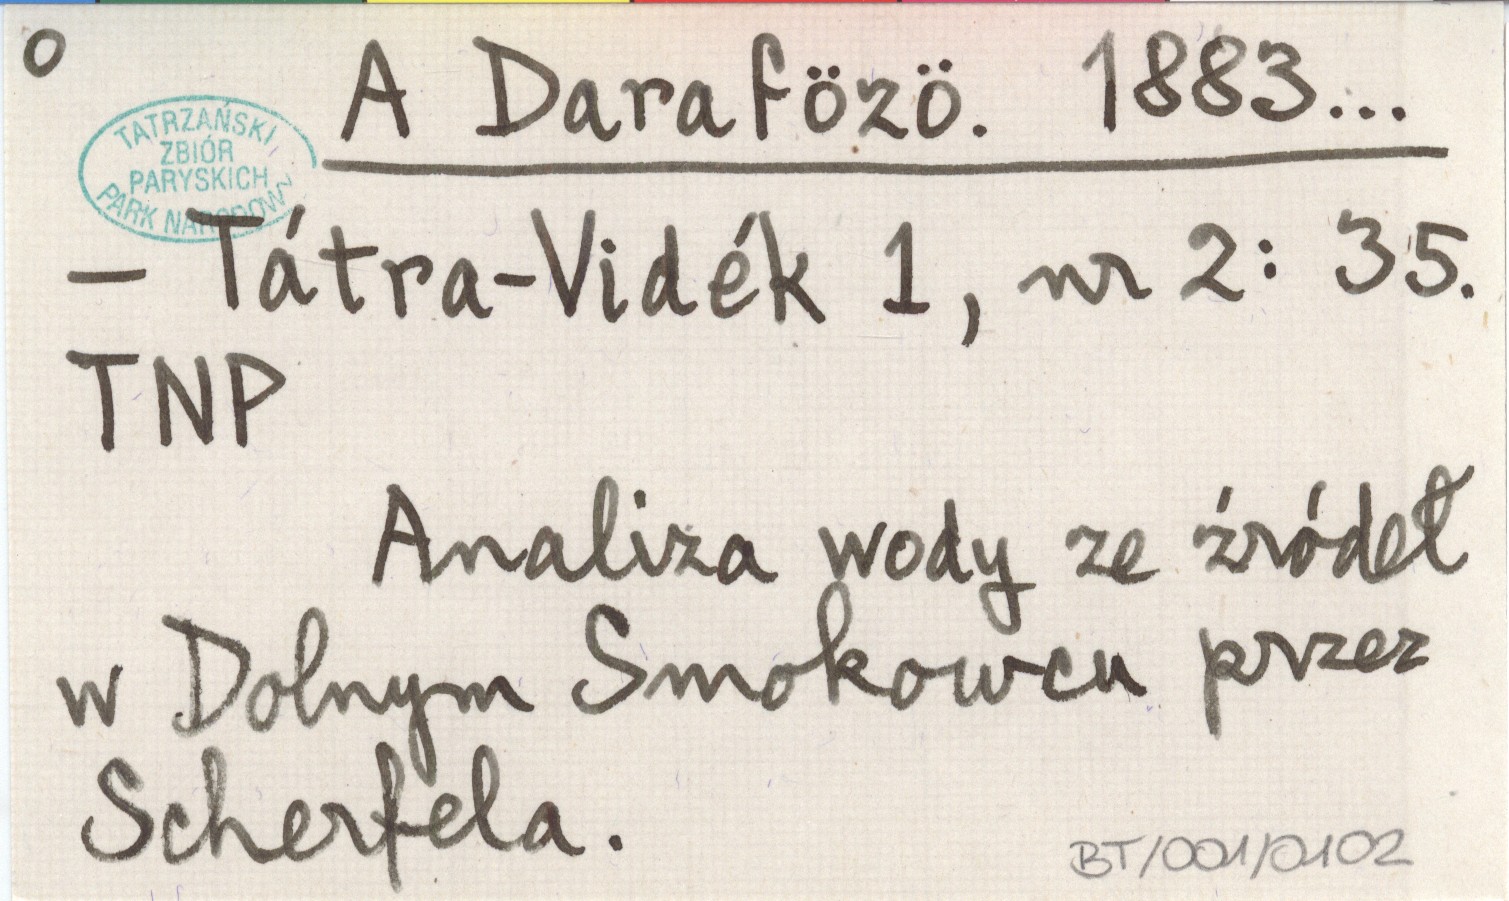 O
A Daraföző. 1883...
TATRZAŃSKI
ZBIÓR
PARYSKICH
PARK NARODOWY
— Tátra-Vidék 1, nr 2: 35.
TNP
Analiza wody ze źródeł
w Dolnym Smokowcu przez
Scherfela.
BT/001/0102